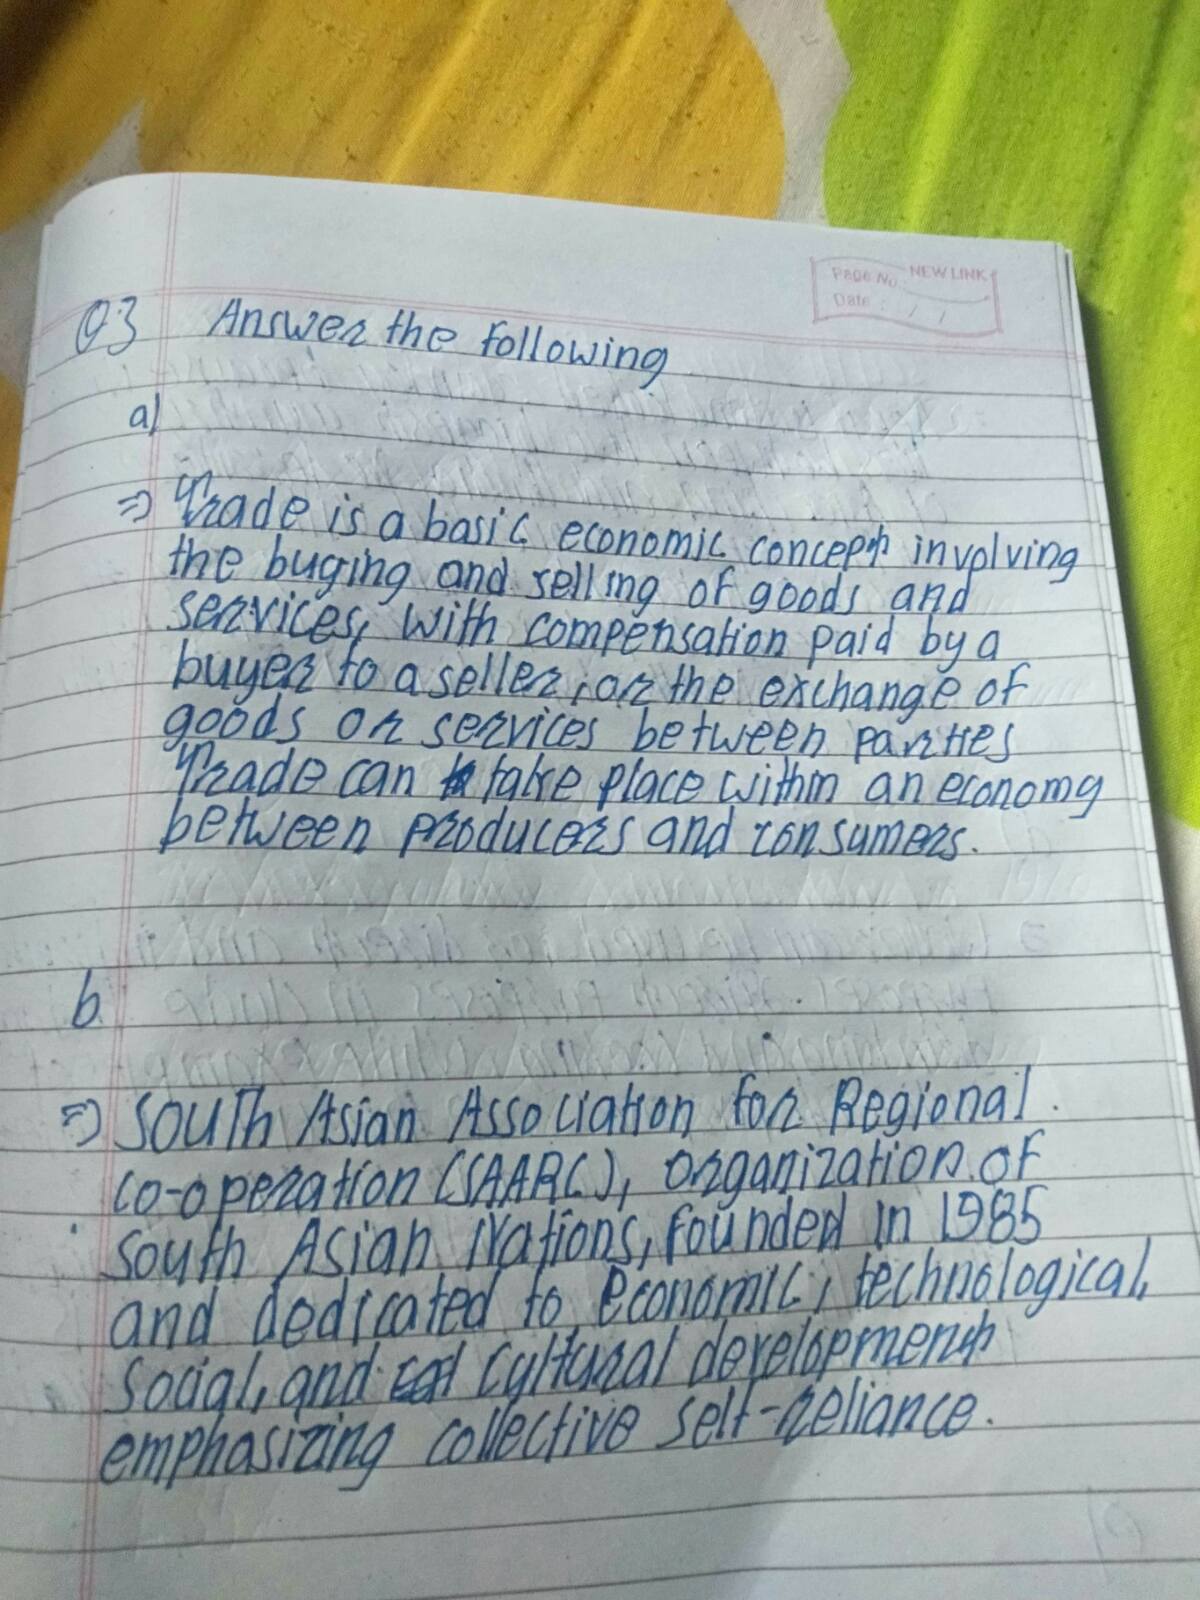 Page No. NEW LINK
Date : / /
Q.3 Answer the following
a)
⇒ Trade is a basic economic concept involving
the buying and selling of goods and
services, with compensation paid by a
buyer to a seller, or the exchange of
goods or services between parties
Trade can take place within an economy
between producers and consumers.
b
⇒ South Asian Association for Regional.
co-operation (SAARC), organization of
South Asian Nations, founded in 1985
and dedicated to economic, technological,
social, and cultural development
emphasizing collective self-reliance.